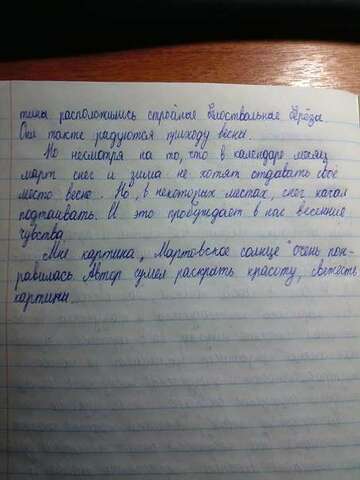 тины расположились стройные белоствольные берёзы.
Они также радуются приходу весны.
Но несмотря на то, что в календаре месяц
март снег и зима не хотят отдавать своё
место весне. Но, в некоторых местах, снег начал
подтаивать. И это пробуждает в нас весенние
чувства.
Мне картина „Мартовское солнце" очень пон-
равилась. Автор сумел раскрать красоту, свежесть
картины.